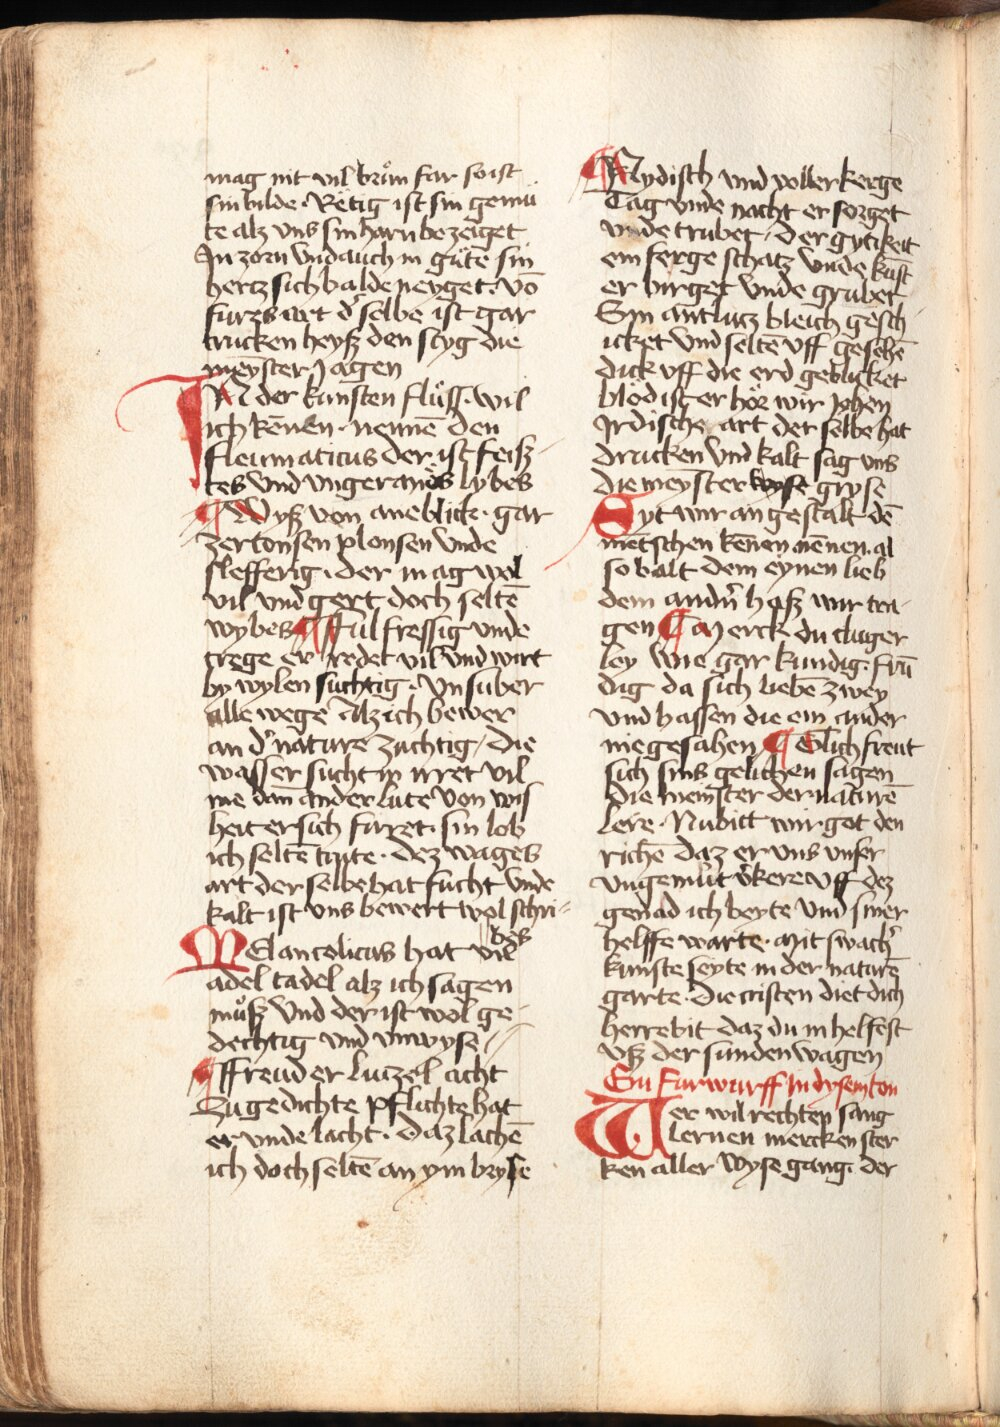 mag nit vil brúm far so ist
sin bilde · Retig ist sin gemú
te alz vns sin harn bezeiget
In zorn vnd auch in gúte sin
hertz sich balde neyget · võ
fures art d' selbe ist gar
trucken heyß den styg die
meyster Jagen
IN der kunsten flúss · wil
ich kēnen · nennē den
fleumaticus der ist feiß
tes vnd vngerands lybes
¶ Wyß von aneblick · gar
zertonsen plonsen vnde
slefferig · der mag wol
vil vnd gert doch seltē
wybes ¶ ful fressig vnde
trege er redet vil vnd wirt
by wylen suchtig · vnsuber
alle wege Alz ich bewer
an d' nature zuchtig / die
wasser sucht yn irret vil
me dañ ander lute von wis
heit er sich furet · sin lob
ich seltē tyite · dez wages
art der selbe hat fucht vnde
kalt ist vns bewert wol schri-
bes
MElancolicus hat vil
adel tadel alz ich sagen
muß vnd der ist wol ge-
dechtig vnd vnwyse
¶ ffreud er luczel acht
Zu gedichte pflichte hat
er vnde lacht · Daz lachē
ich doch seltē an ym bryse
¶ Nydisch vnd voller kerge
Tag vnde nacht er sorget
vnde trubet / der gytikeit
ein ferge schatz vnde kust
er birget vnde grubet
Syn antlucz bleich gesch-
icket vnd seltē vff gesehē
dick vff die erd gebucket
blod ist er hör wir Johen
Irdische art der selbe hat
drucken vnd kalt sag vns
die meyster wyse gryse
Syt wir an gestalt dē
mētschen kēnen nēnen al
so balt dem eynen lieb
dem andn̄ haß wir tra-
gen ¶ Merck du cluger
ley wie gar kundig · frú
dig da sich liebē zwey
vnd hassen die ein ander
nie gesahen ¶ Glich freut
sich sins gelichen sagen
die meinster der naturē
lere · Nu bitt wir got den
richē daz er vns vnser
vngemut v'kere vff dez
genad ich beyte vnd siner
helffe warte · mit swach'
kunste seyte in der naturē
garte · die cristen diet dich
herre bit daz du in helfest
vß der sunden wagen
Ein furwurff In dysem ton
Wer wil rechten sang
lernen mercken ster
ken aller wyse gang · der